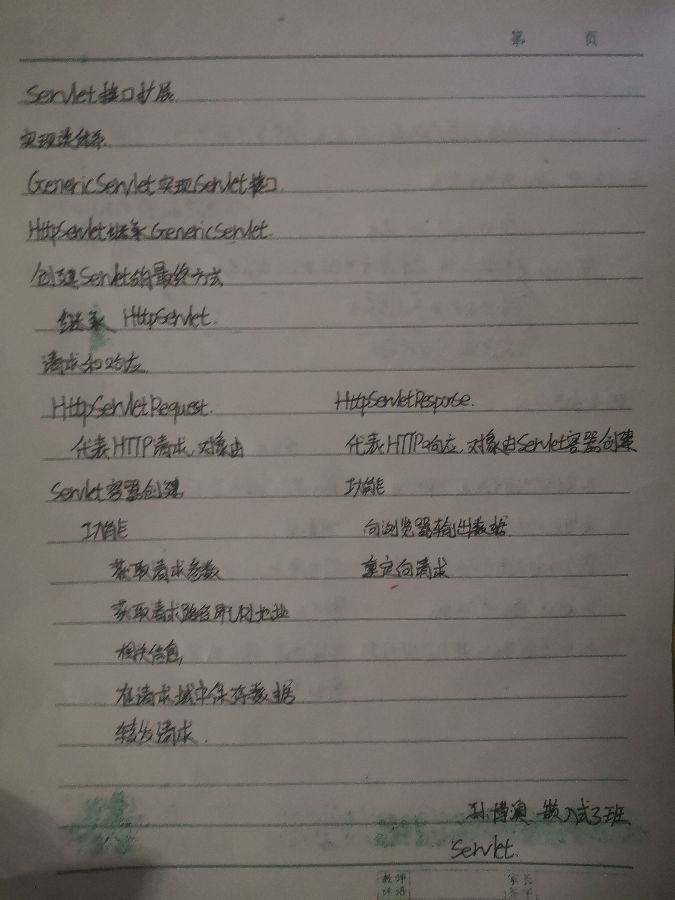 第 页
Servlet接口扩展
实现类体系
GenericServlet实现Servlet接口
HttpServlet继承GenericServlet
创建Servlet的最终方式
继承 HttpServlet.
请求和响应
HttpServletRequest.
代表HTTP请求,对象由
Servlet容器创建
功能
获取请求参数
获取请求路径即Url地址
相关信息,
在请求域中保存数据
转发请求.
HttpServletResponse.
代表HTTP响应,对象由Servlet容器创建
功能
向浏览器输出数据
重定向请求
孙 嵌入式3班
Servlet.
教师
评语
家长
签字